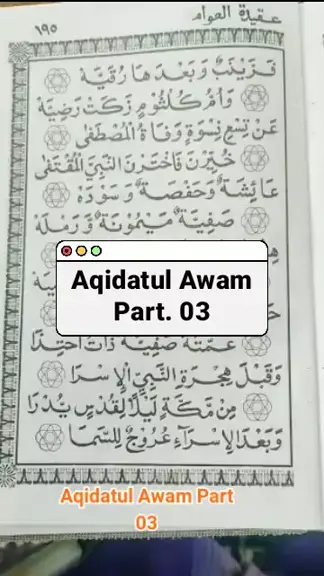 عقيدة العوام
١٩٥
فَزَيْنَبٌ وَبَعْدَهَا رُقَيَّة
وَأُمُّ كُلْثُومٍ زَكَتْ رَضِيَّة
عَنْ تِسْعِ نِسْوَةٍ وَفَاةُ الْمُصْطَفَى
خُيِّرْنَ فَاخْتَرْنَ النَّبِيَّ الْمُقْتَفَى
عَائِشَةٌ وَحَفْصَةٌ وَسَوْدَة
صَفِيَّةٌ مَيْمُونَةٌ وَرَمْلَة
Aqidatul Awam
Part. 03
عَمَّتُهُ صَفِيَّةٌ ذَاتُ احْتِذَا
وَقَبْلَ هِجْرَةِ النَّبِيِّ الْإِسْرَا
مِنْ مَكَّةٍ لَيْلًا لِقُدْسٍ يُدْرَا
وَبَعْدَ الْإِسْرَاءِ عُرُوجٌ لِلسَّمَا
Aqidatul Awam Part
03